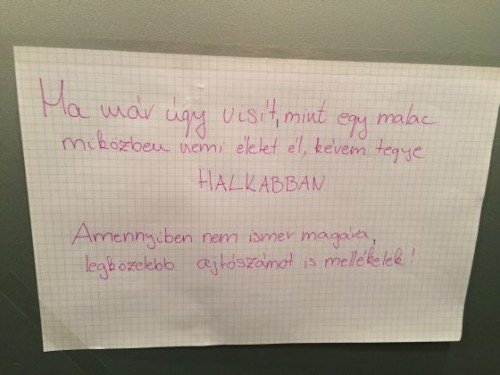 Ha már úgy visít, mint egy malac
miközben nemi életet él, kérem tegye
HALKABBAN
Amennyiben nem ismer magára,
legközelebb ajtószámot is mellékelek!